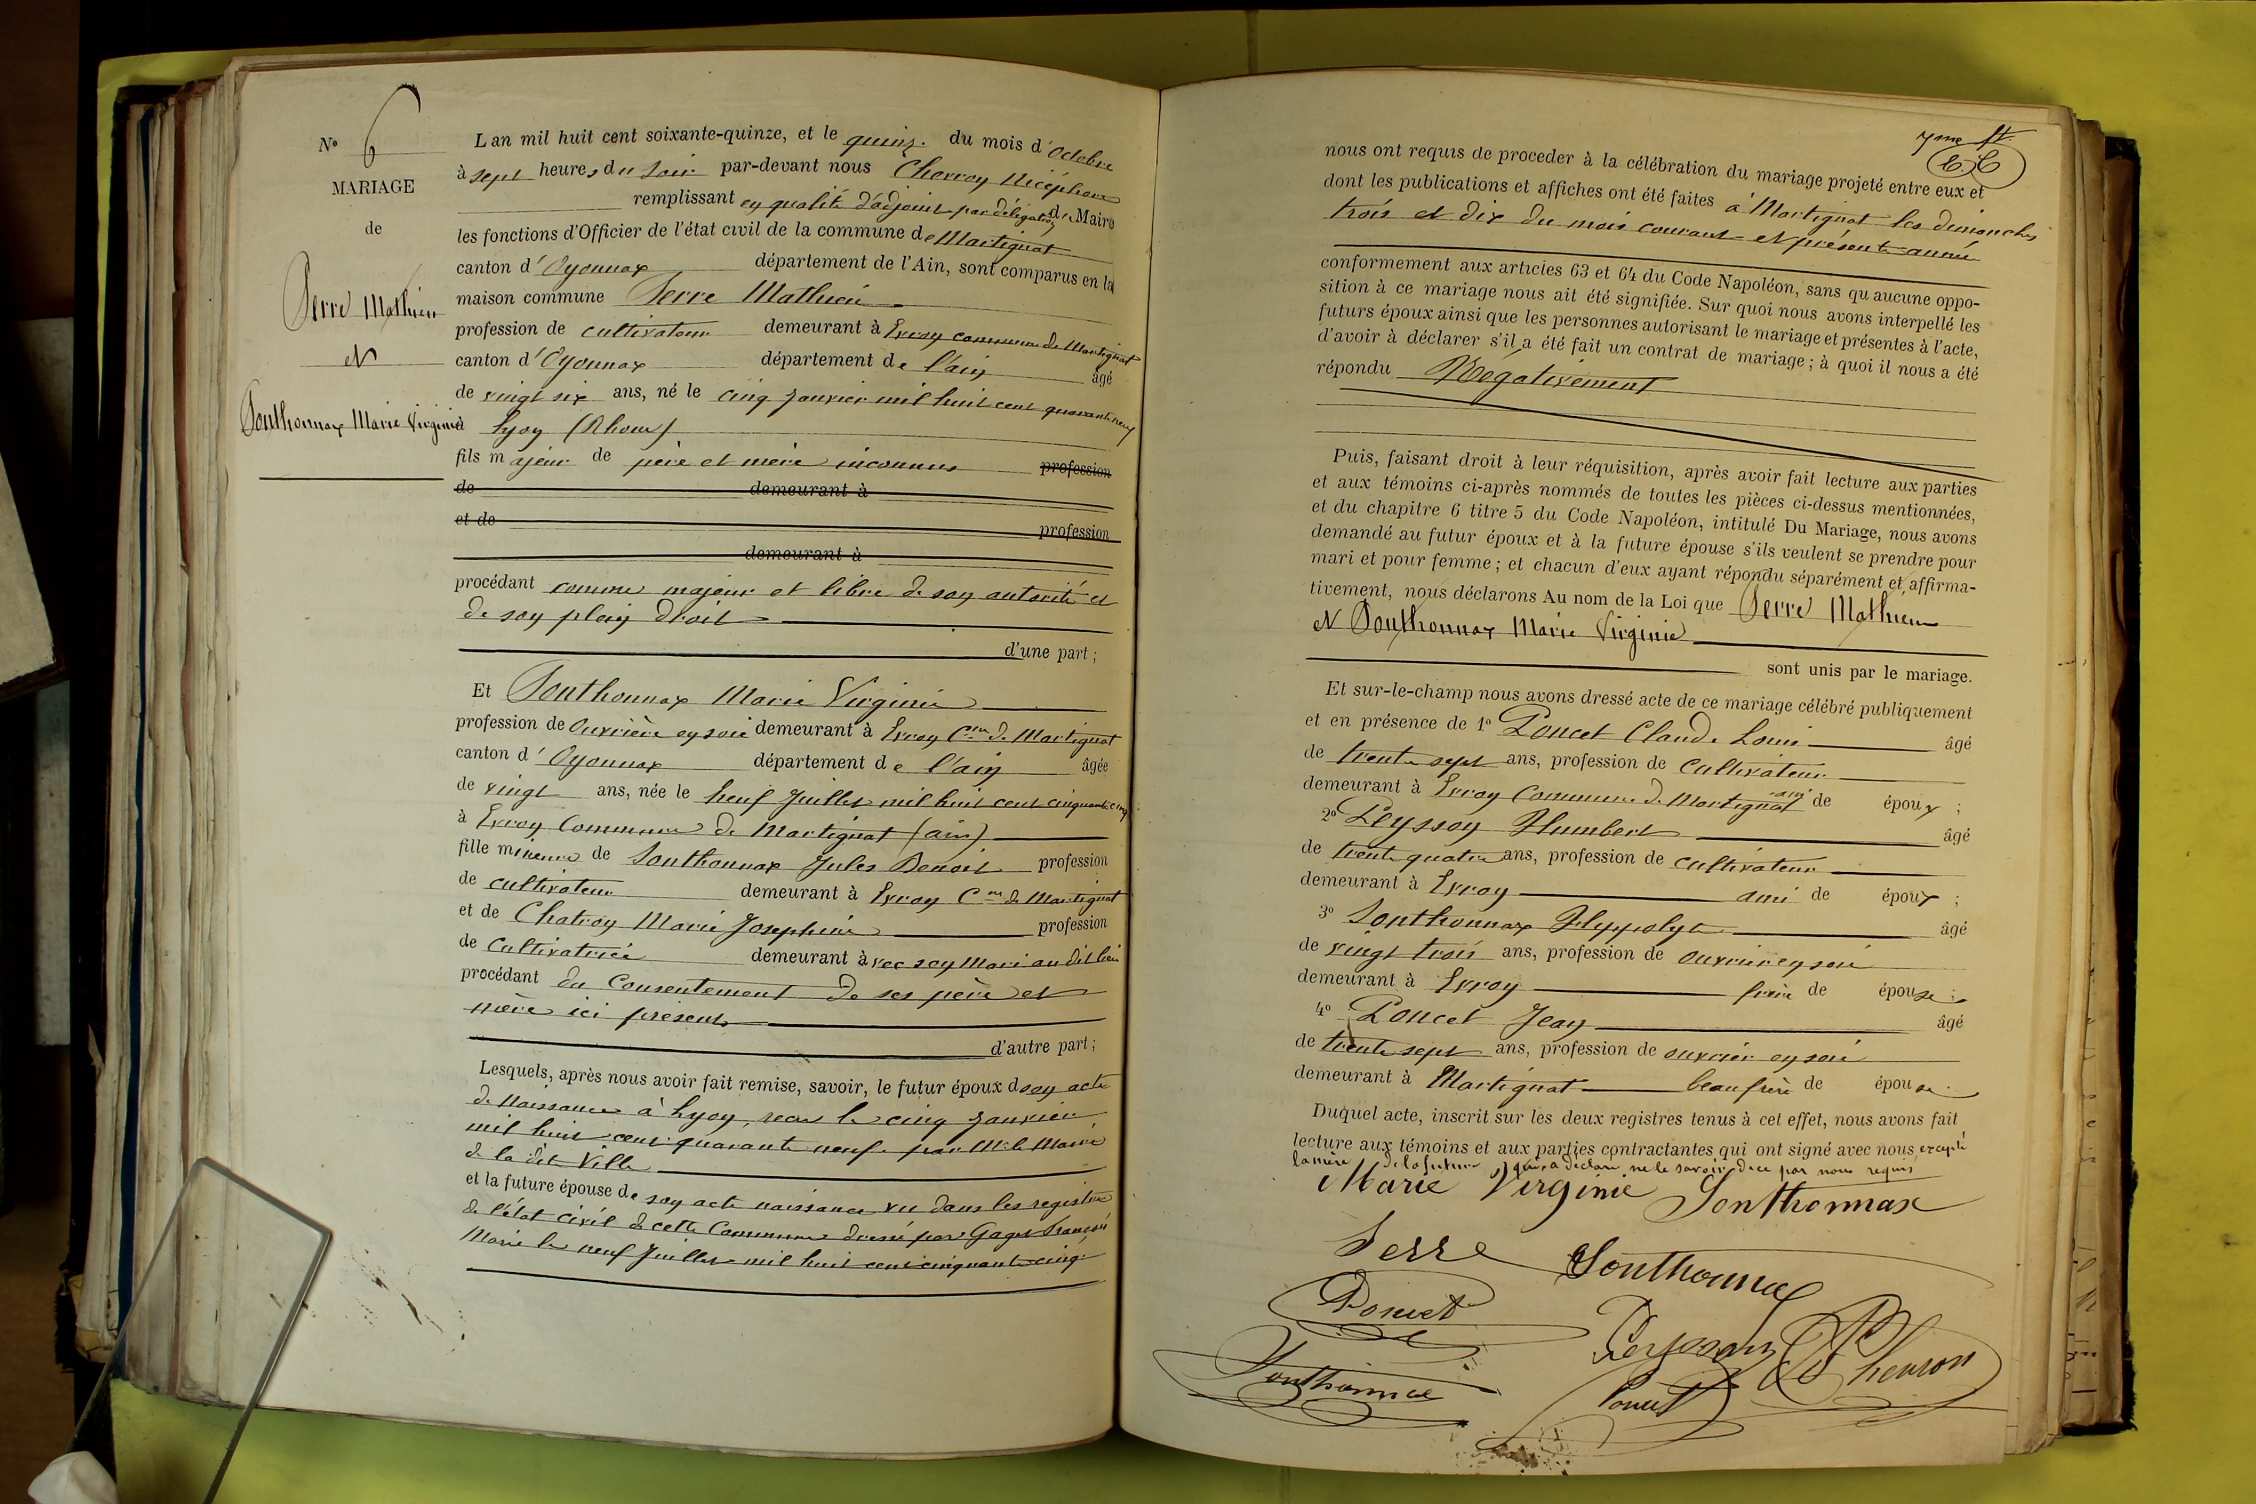 N° 6
MARIAGE
de
Serre Mathieu
et
Sonthonnax Marie Virginie
L'an mil huit cent soixante-quinze, et le quinz. du mois d'Octobre
à sept heures du soir par-devant nous Chevron Nicéphore
remplissant en qualité d'adjoint par délégation du Maire
les fonctions d'Officier de l'état civil de la commune de Martignat
canton d'Oyonnax département de l'Ain, sont comparus en la
maison commune Serre Mathieu
profession de cultivateur demeurant à Evroy commune de Martignat
canton d'Oyonnax département de l'ain âgé
de vingt six ans, né le cinq janvier mil huit cent quarante neuf
à Lyon (Rhone)
fils majeur de père et mère inconnus profession
de demeurant à
et de profession
demeurant à
procédant comme majeur et libre de son autorité et
de son plein droit
d'une part ;
Et Sonthonnax Marie Virginie
profession de Ouvrière en soie demeurant à Evroy Cne de Martignat
canton d'Oyonnax département de l'ain âgée
de vingt ans, née le neuf Juillet mil huit cent cinquante cinq
à Evroy Commune de Martignat (ain)
fille mineure de Sonthonnax Jules Benoit profession
de cultivateur demeurant à Evroy Cne de Martignat
et de Chatron Marie Josephine profession
de Cultivatrice demeurant avec son Mari au dit lieu
procédant du Consentement de ses père et
mère ici présents
d'autre part ;
Lesquels, après nous avoir fait remise, savoir, le futur époux de son acte
de Naissance à Lyon, recu le cinq janvier
mil huit cent quarante neuf par Mr le Maire
de la dite Ville
et la future épouse de son acte naissance vu dans les registres
de l'état civil de cette Commune dressé par Gaget François
Maire le neuf Juillet mil huit cent cinquante cinq
7me ft.
nous ont requis de procéder à la célébration du mariage projeté entre eux et
dont les publications et affiches ont été faites à Martignat les dimanches
trois et dix du mois courant et présente année
conformement aux articles 63 et 64 du Code Napoléon, sans qu'aucune oppo-
sition à ce mariage nous ait été signifiée. Sur quoi nous avons interpellé les
futurs époux ainsi que les personnes autorisant le mariage et présentes à l'acte,
d'avoir à déclarer s'il a été fait un contrat de mariage ; à quoi il nous a été
répondu Négativement
Puis, faisant droit à leur réquisition, après avoir fait lecture aux parties
et aux témoins ci-après nommés de toutes les pièces ci-dessus mentionnées,
et du chapitre 6 titre 5 du Code Napoléon, intitulé Du Mariage, nous avons
demandé au futur époux et à la future épouse s'ils veulent se prendre pour
mari et pour femme ; et chacun d'eux ayant répondu séparément et affirma-
tivement, nous déclarons Au nom de la Loi que Serre Mathieu
et Sonthonnax Marie Virginie
sont unis par le mariage.
Et sur-le-champ nous avons dressé acte de ce mariage célébré publiquement
et en présence de 1° Poncet Claude Louis âgé
de trente sept ans, profession de cultivateur
demeurant à Evroy Commune de Martignat ami de époux ;
2° Peysson Humbert âgé
de trente quatre ans, profession de cultivateur
demeurant à Evroy ami de époux ;
3° Sonthonnax Hyppolyte âgé
de vingt trois ans, profession de ouvrier en soie
demeurant à Evroy frère de épouse ;
4° Poncet Jean âgé
de trente sept ans, profession de ouvrier en soie
demeurant à Martignat beau frère de épouse.
Duquel acte, inscrit sur les deux registres tenus à cet effet, nous avons fait
lecture aux témoins et aux parties contractantes qui ont signé avec nous, excepté
la mère de la future qui a déclaré ne le savoir de ce par nous requis
Marie Virginie Sonthonnax
Serre Sonthonnax
Poncet
Peysson Chevron
Sonthonnax Poncet